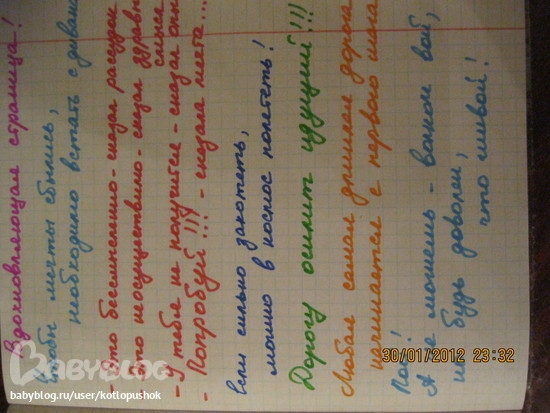 Вдохновляющая страница!
Чтобы мечты сбылись,
необходимо встать с дивана
- Это бессмысленно - сказал рассудок
- Это неосуществимо - сказал здравый
смысл
- У тебя не получится - сказал опы
- Попробуй!!! - сказала мечта...
Если сильно захотеть,
можно в космос полететь!
Дорогу осилит идущий!!!
Любая самая длинная дорога
начинается с первого шага
Пой!
А не можешь - волком вой,
но будь доволен,
что живой!
30/01/2012 23:32
BABYBLOG
babyblog.ru/user/kotlopushok